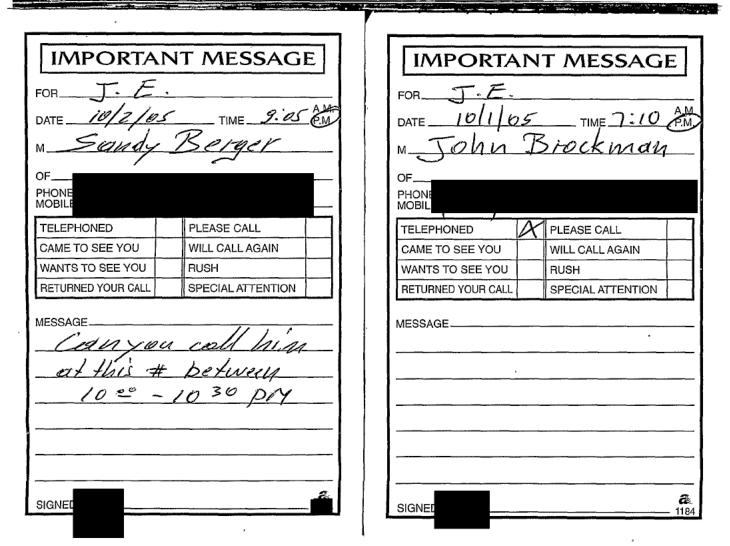 IMPORTANT MESSAGE
FOR J. E.
DATE 10/2/05 TIME 9:05 A.M. P.M.
M Sandy Berger
OF
PHONE
MOBILE
TELEPHONED PLEASE CALL
CAME TO SEE YOU WILL CALL AGAIN
WANTS TO SEE YOU RUSH
RETURNED YOUR CALL SPECIAL ATTENTION
MESSAGE
Can you call him
at this # between
10 00 - 10 30 PM
SIGNED
IMPORTANT MESSAGE
FOR J. E.
DATE 10/1/05 TIME 7:10 A.M. P.M.
M John Brockman
OF
PHONE
MOBIL
TELEPHONED X PLEASE CALL
CAME TO SEE YOU WILL CALL AGAIN
WANTS TO SEE YOU RUSH
RETURNED YOUR CALL SPECIAL ATTENTION
MESSAGE
SIGNED
a
1184